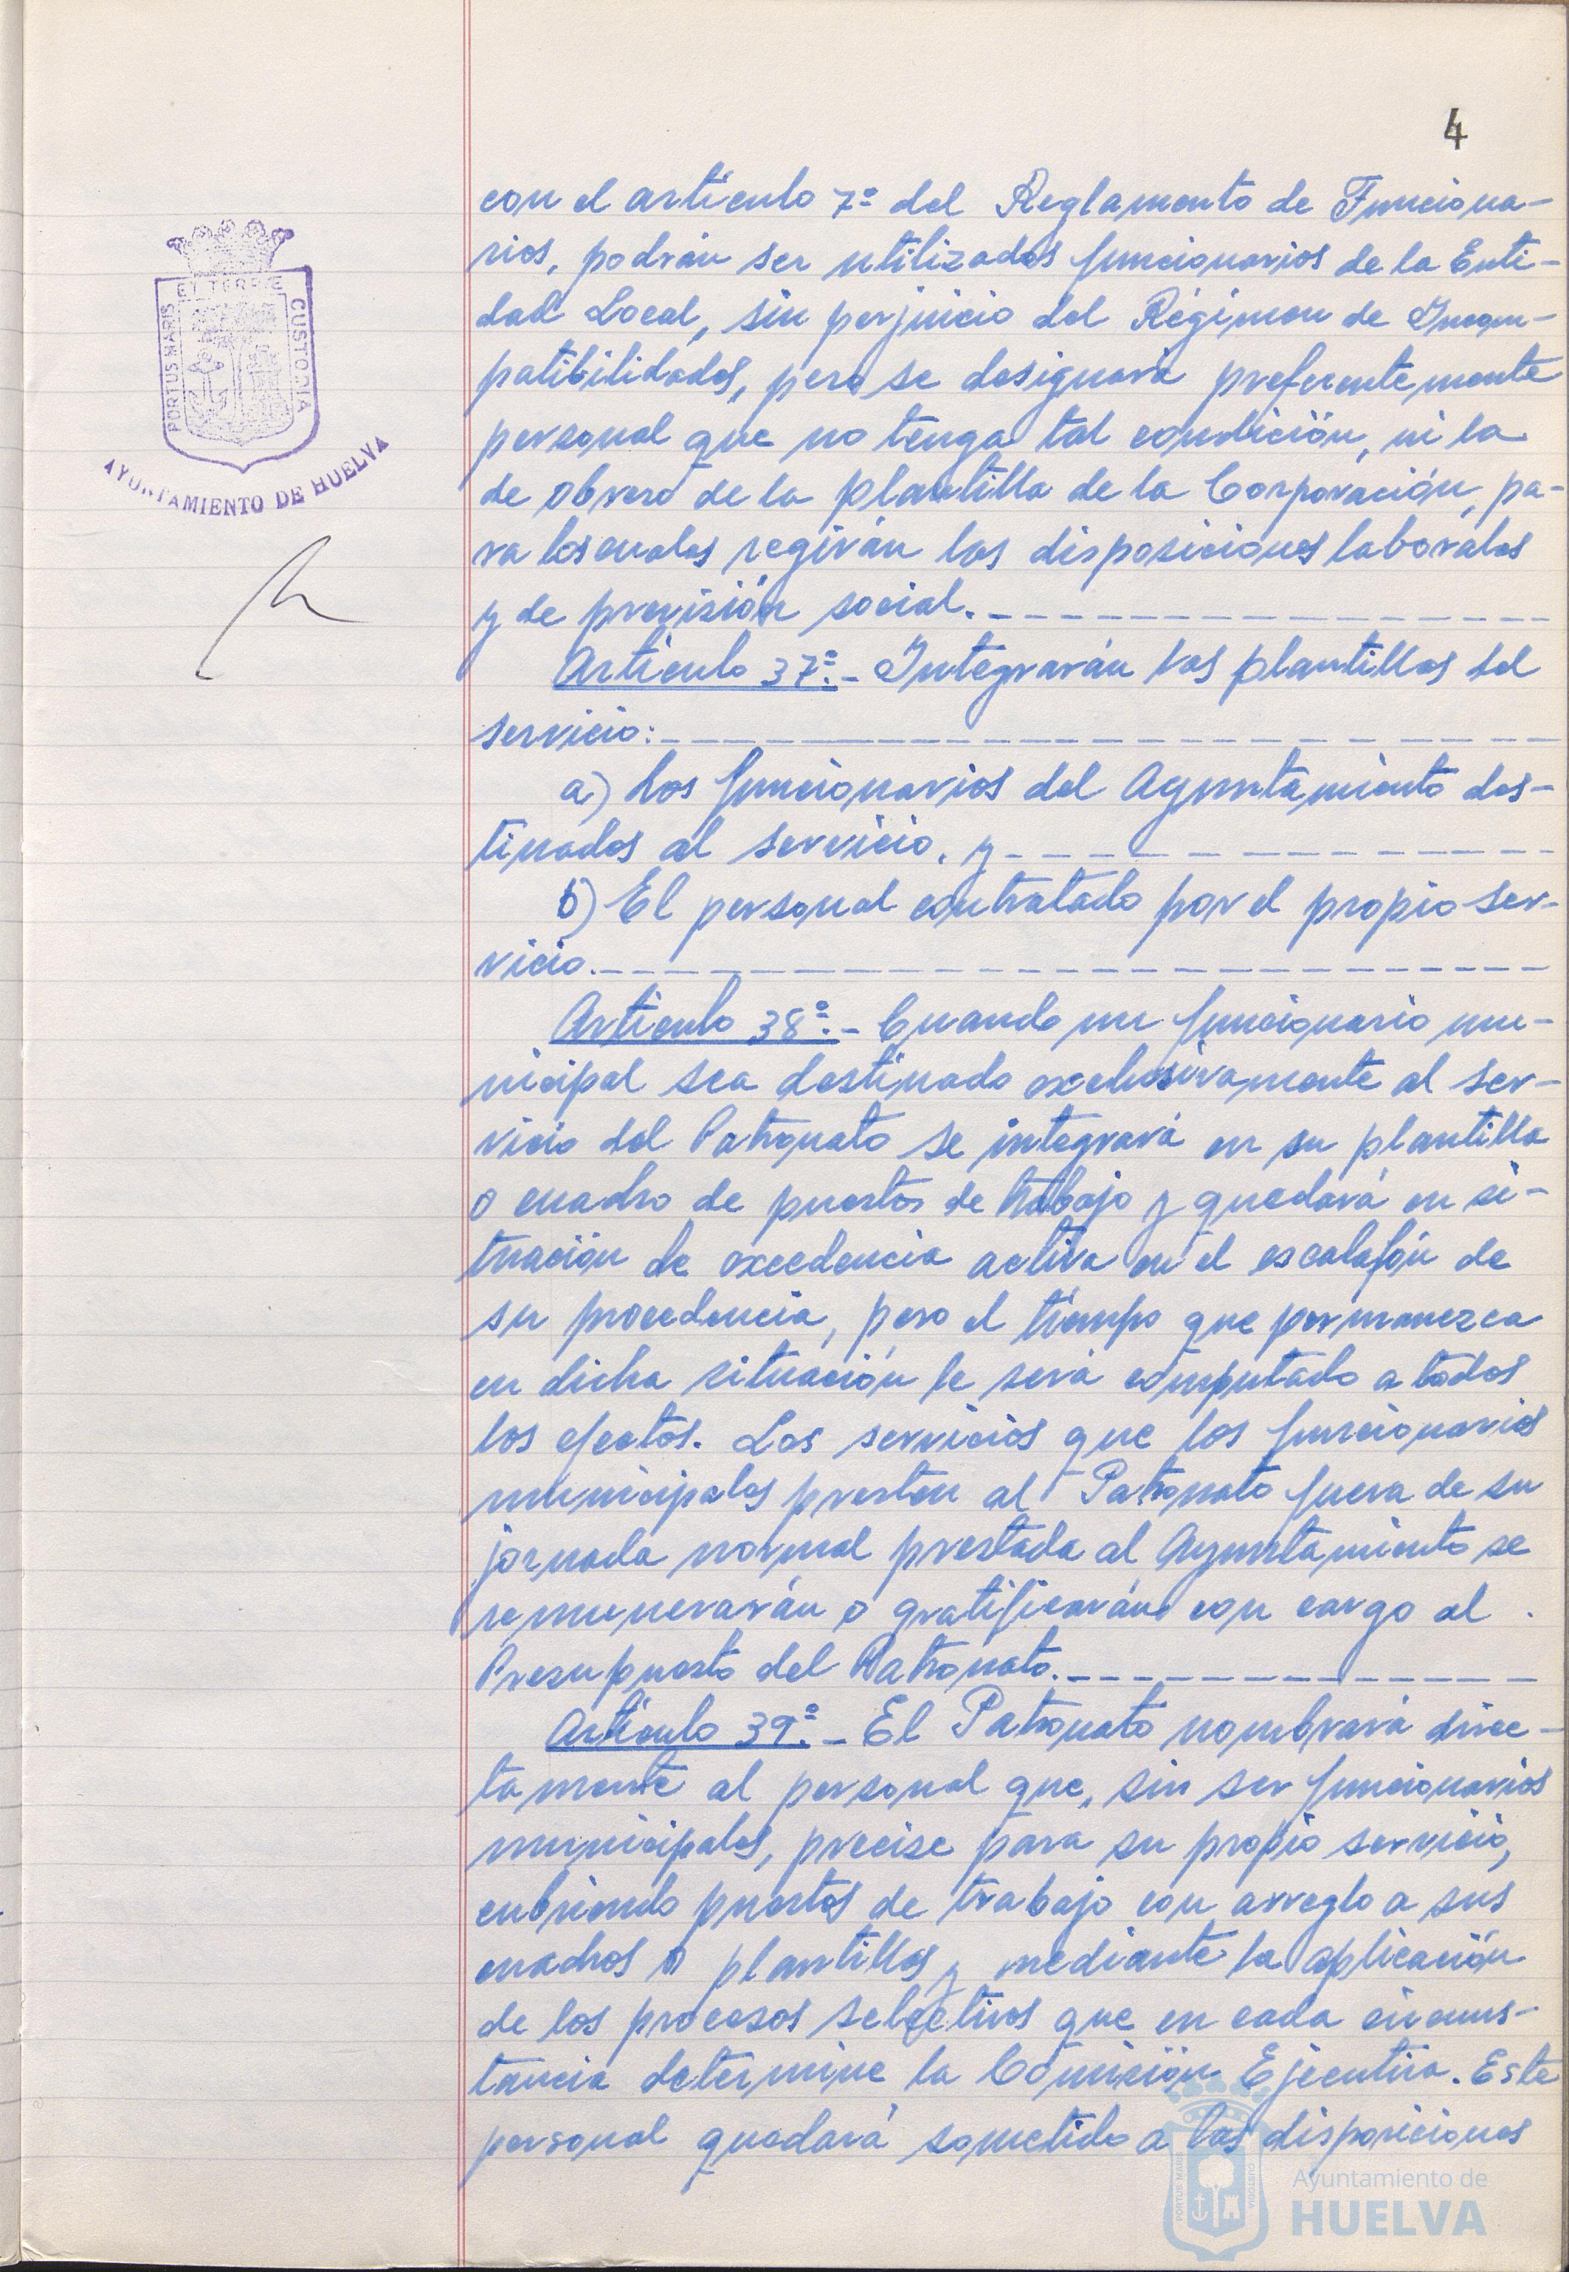 4
con el artículo 7º del Reglamento de Funciona-
rios, podrán ser utilizados funcionarios de la Enti-
dad Local, sin perjuicio del Régimen de Incom-
patibilidades, pero se designará preferentemente
personal que no tenga tal condición, ni la
de obrero de la plantilla de la Corporación, pa-
ra los cuales regirán las disposiciones laborales
y de previsión social.
Artículo 37º.- Integrarán las plantillas del
servicio:
a) Los funcionarios del Ayuntamiento des-
tinados al servicio, y
b) El personal contratado por el propio ser-
vicio.
Artículo 38º.- Cuando un funcionario mu-
nicipal sea destinado exclusivamente al ser-
vicio del Patronato se integrará en su plantilla
o cuadro de puestos de trabajo y quedará en si-
tuación de excedencia activa en el escalafón de
su procedencia, pero el tiempo que permanezca
en dicha situación le será computado a todos
los efectos. Los servicios que los funcionarios
municipales presten al Patronato fuera de su
jornada normal prestada al Ayuntamiento se
remunerarán o gratificarán con cargo al
Presupuesto del Patronato.
Artículo 39º.- El Patronato nombrará direc-
tamente al personal que, sin ser funcionarios
municipales, precise para su propio servicio,
cubriendo puestos de trabajo con arreglo a sus
cuadros o plantillas y mediante la aplicación
de los procesos selectivos que en cada circuns-
tancia determine la Comisión Ejecutiva. Este
personal quedará sometido a las disposiciones
PORTUS MARIS
ET TERRE
CUSTODIA
AYUNTAMIENTO DE HUELVA
PORTUS MARIS
CUSTODIA
Ayuntamiento de
HUELVA